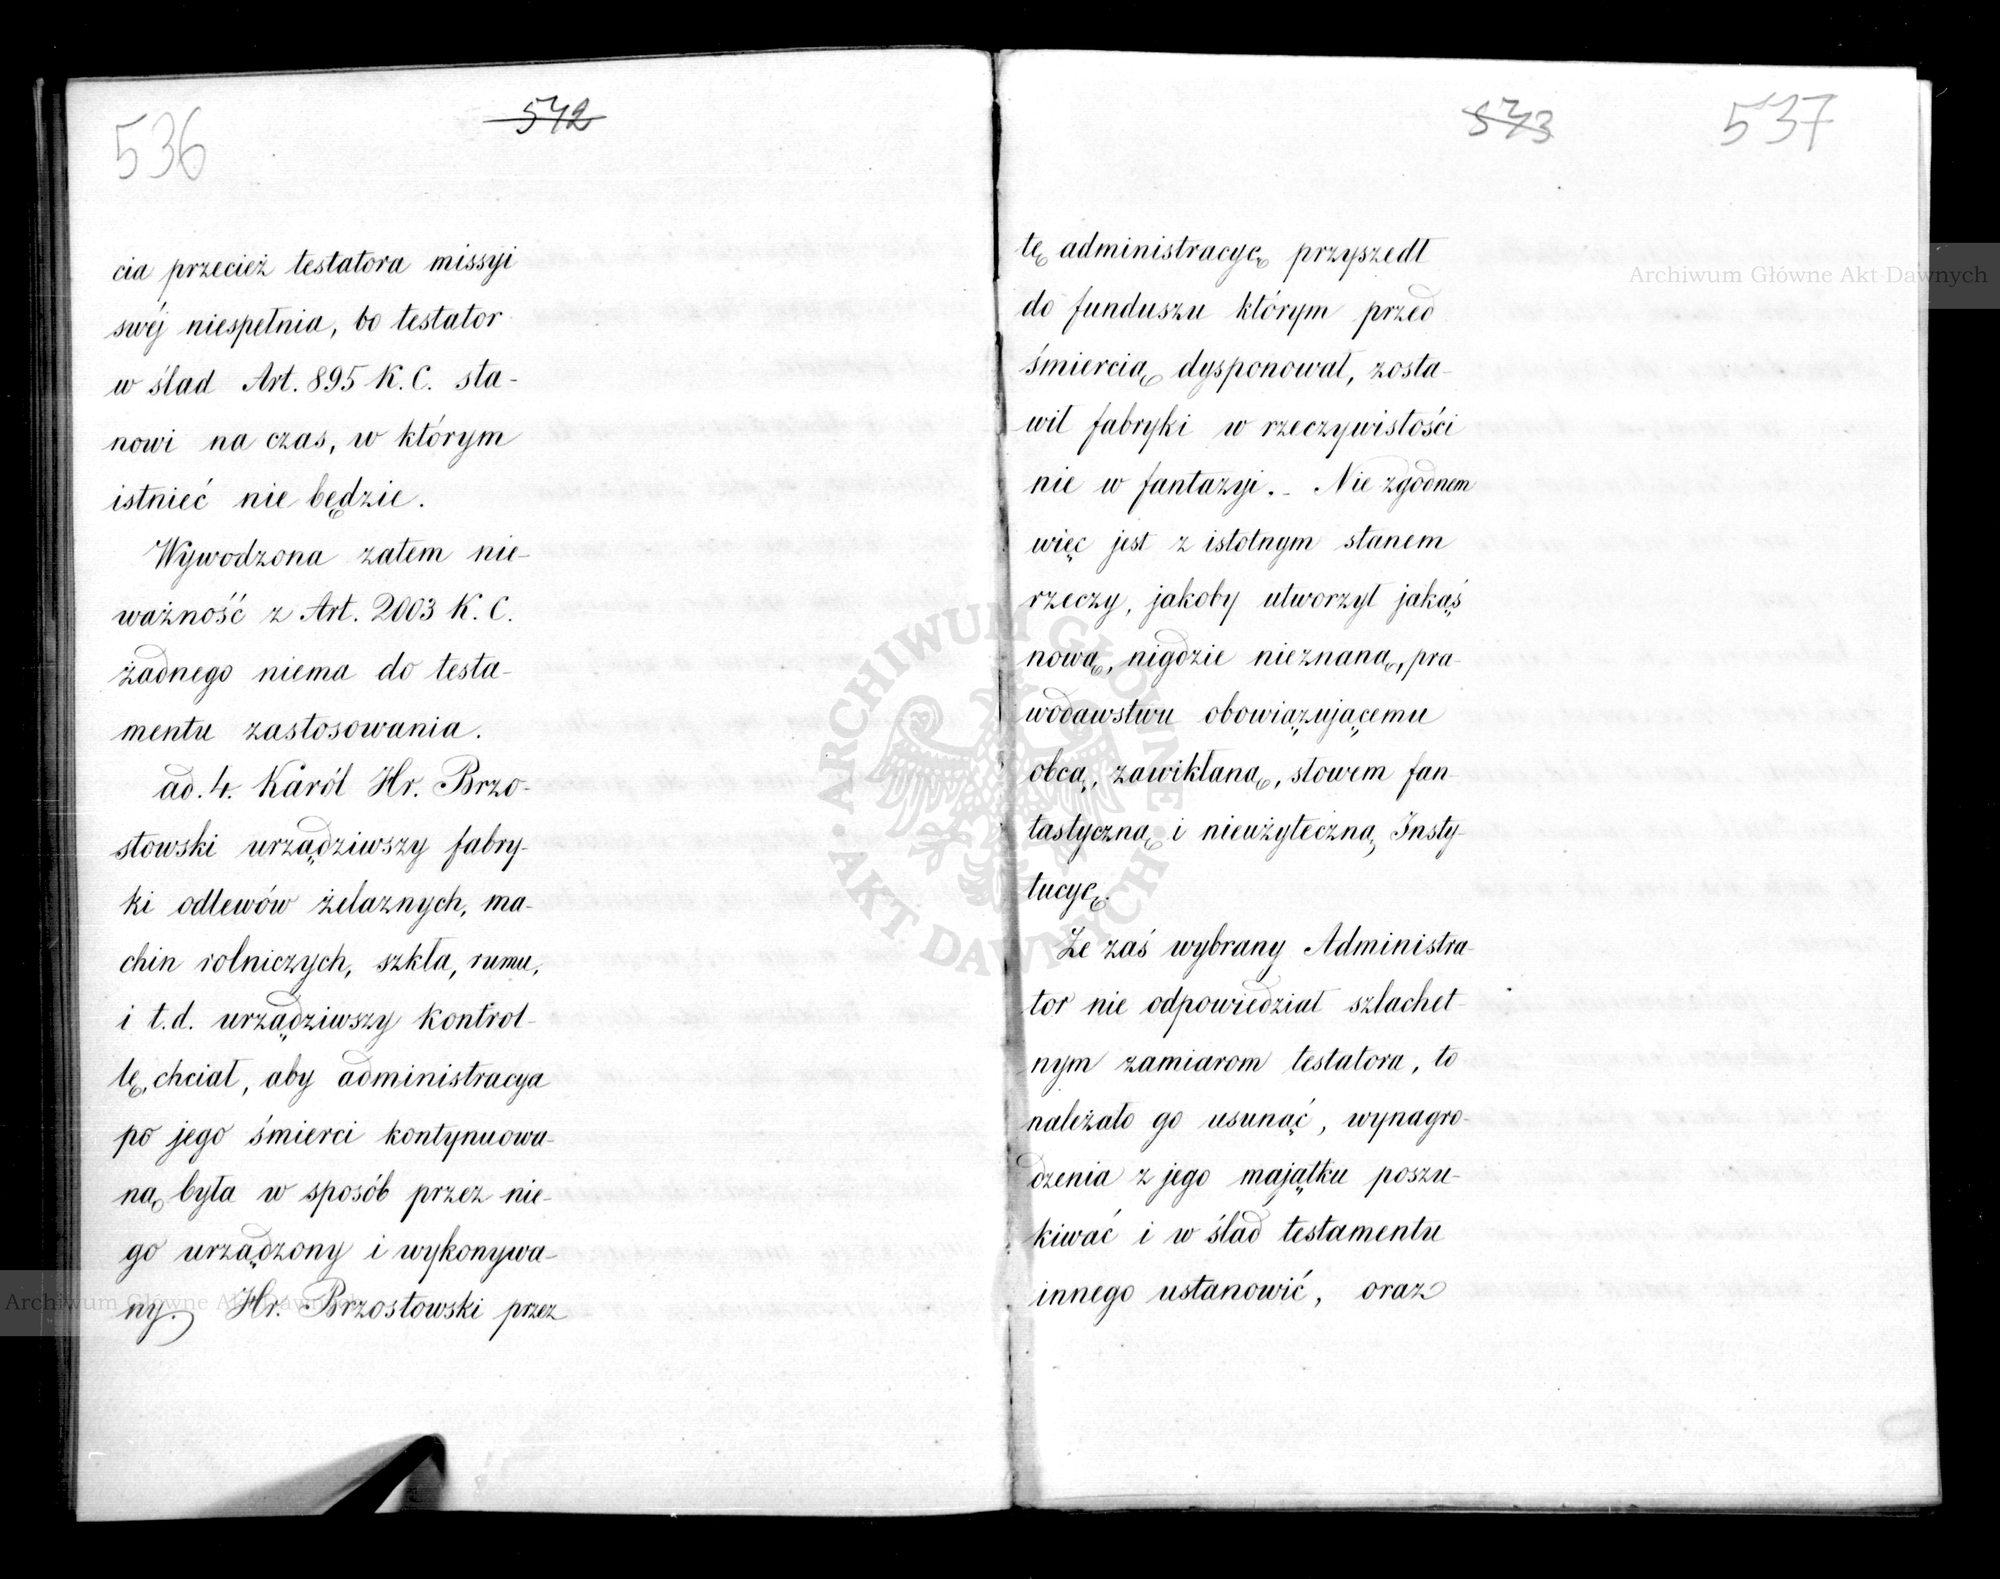 536
542
cia przecież testatora missyi
swéj niespełnia, bo testator
w ślad Art. 895 K. C. sta-
nowi na czas, w którym
istnieć nie będzie.
Wywodzona zatem nie-
ważność z Art. 2003 K. C.
żadnego niema do testa-
mentu zastosowania.
ad. 4. Karól Hr. Brzo-
stowski urządziwszy fabry-
ki odlewów żelaznych, ma-
chin rolniczych, szkła, rumu,
i t. d. urządziwszy kontrol-
lę, chciał, aby administracya
po jego śmierci kontynuowa-
ną była w sposób przez nie-
go urządzony i wykonywa-
ny. Hr. Brzostowski przez
543
537
tę administracyę przyszedł
do funduszu którym przed
śmiercią dysponował, zosta-
wił fabryki w rzeczywistości
nie w fantazyi. - Nie zgodnem
więc jest z istotnym stanem
rzeczy, jakoby utworzył jakąś
nową, nigdzie nieznaną, pra-
wodawstwu obowiązującemu
obcą, zawikłaną, słowem fan-
tastyczną i nieużyteczną Insty-
tucyę.
Że zaś wybrany Administra-
tor nie odpowiedział szlachet-
nym zamiarom testatora, to
należało go usunąć, wynagro-
dzenia z jego majątku poszu-
kiwać i w ślad testamentu
innego ustanowić, oraz
Archiwum Główne Akt Dawnych
Archiwum Główne Akt Dawnych
ARCHIWUM GŁÓWNE • AKT DAWNYCH •